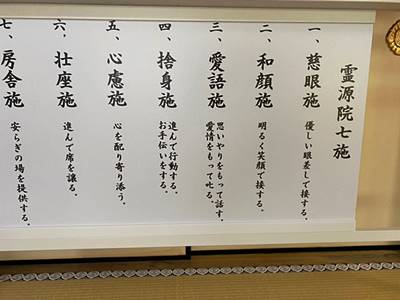 霊源院七施
一、慈眼施 優しい眼差しで接する。
二、和顔施 明るく笑顔で接する。
三、愛語施 思いやりをもって話す。
愛情をもって叱る。
四、捨身施 進んで行動する。
お手伝いをする。
五、心慮施 心を配り寄り添う。
六、壮座施 進んで席を譲る。
七、房舎施 安らぎの場を提供する。